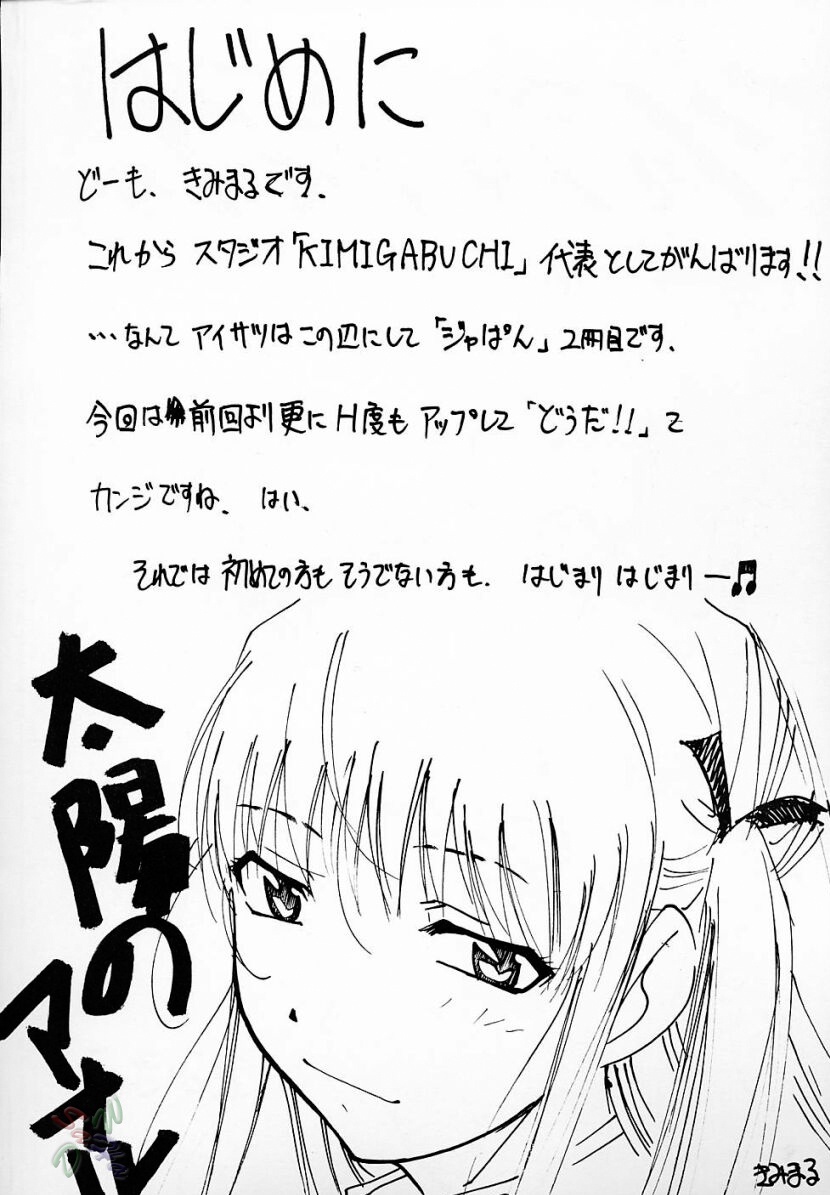 はじめに
どーも、きみまるです.
これから スタジオ「KIMIGABUCHI」代表としてがんばります!!
…なんて アイサツはこの辺にして「じゃぱん」2冊目です.
今回は前回より更に H度も アップして「どうだ!!」て
カンジですね、 はい、
それでは 初めての方も そうでない方も、 はじまり はじまりー♫
太陽の
マオル
きみまる